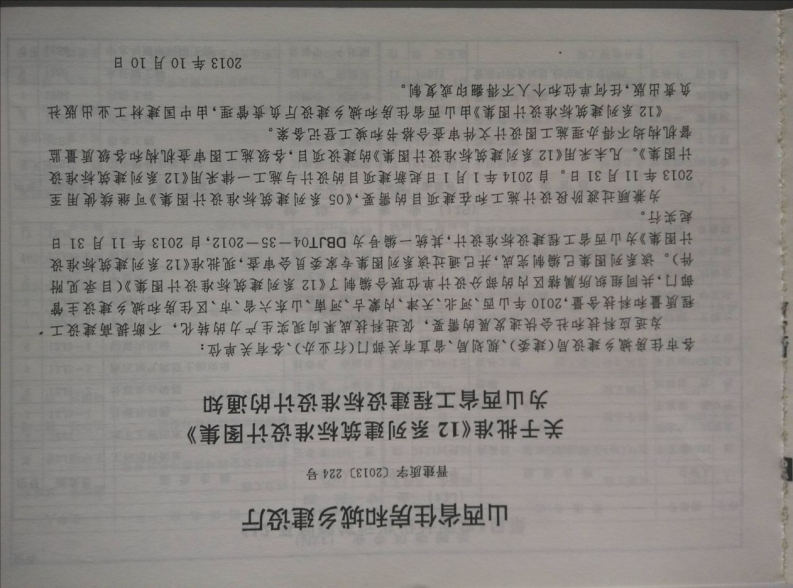 山西省住房和城乡建设厅
晋建质字〔2013〕224号
关于批准《12系列建筑标准设计图集》
为山西省工程建设标准设计的通知
各市住房城乡建设局(建委)、规划局、省直有关部门(行业办)、各有关单位:
为适应科技和社会快速发展的需要,促进科技成果向现实生产力的转化,不断提高建设工
程质量和科技含量,2010年山西、河北、天津、内蒙古、河南、山东六省、市、区住房和城乡建设主管
部门,共同组织所属辖区内的部分设计单位联合编制了《12系列建筑标准设计图集》(目录见附
件)。该系列图集已编制完成,并已通过该系列图集专家委员会审查,现批准《12系列建筑标准设
计图集》为山西省工程建设标准设计,其统一编号为DBJT04—35—2012,自2013年11月31日
起实行。
为兼顾过渡阶段设计施工和在建项目的需要,《05系列建筑标准设计图集》可继续使用至
2013年11月31日。自2014年1月1日起新建项目的设计与施工一律采用《12系列建筑标准设
计图集》。凡未采用《12系列建筑标准设计图集》的建设项目,各级施工图审查机构和各级质量监
督机构均不得办理施工图设计文件审查合格书和竣工登记备案。
《12系列建筑标准设计图集》由山西省住房和城乡建设厅负责管理,由中国建材工业出版社
负责出版,任何单位和个人不得翻印或复制。
2013年10月10日